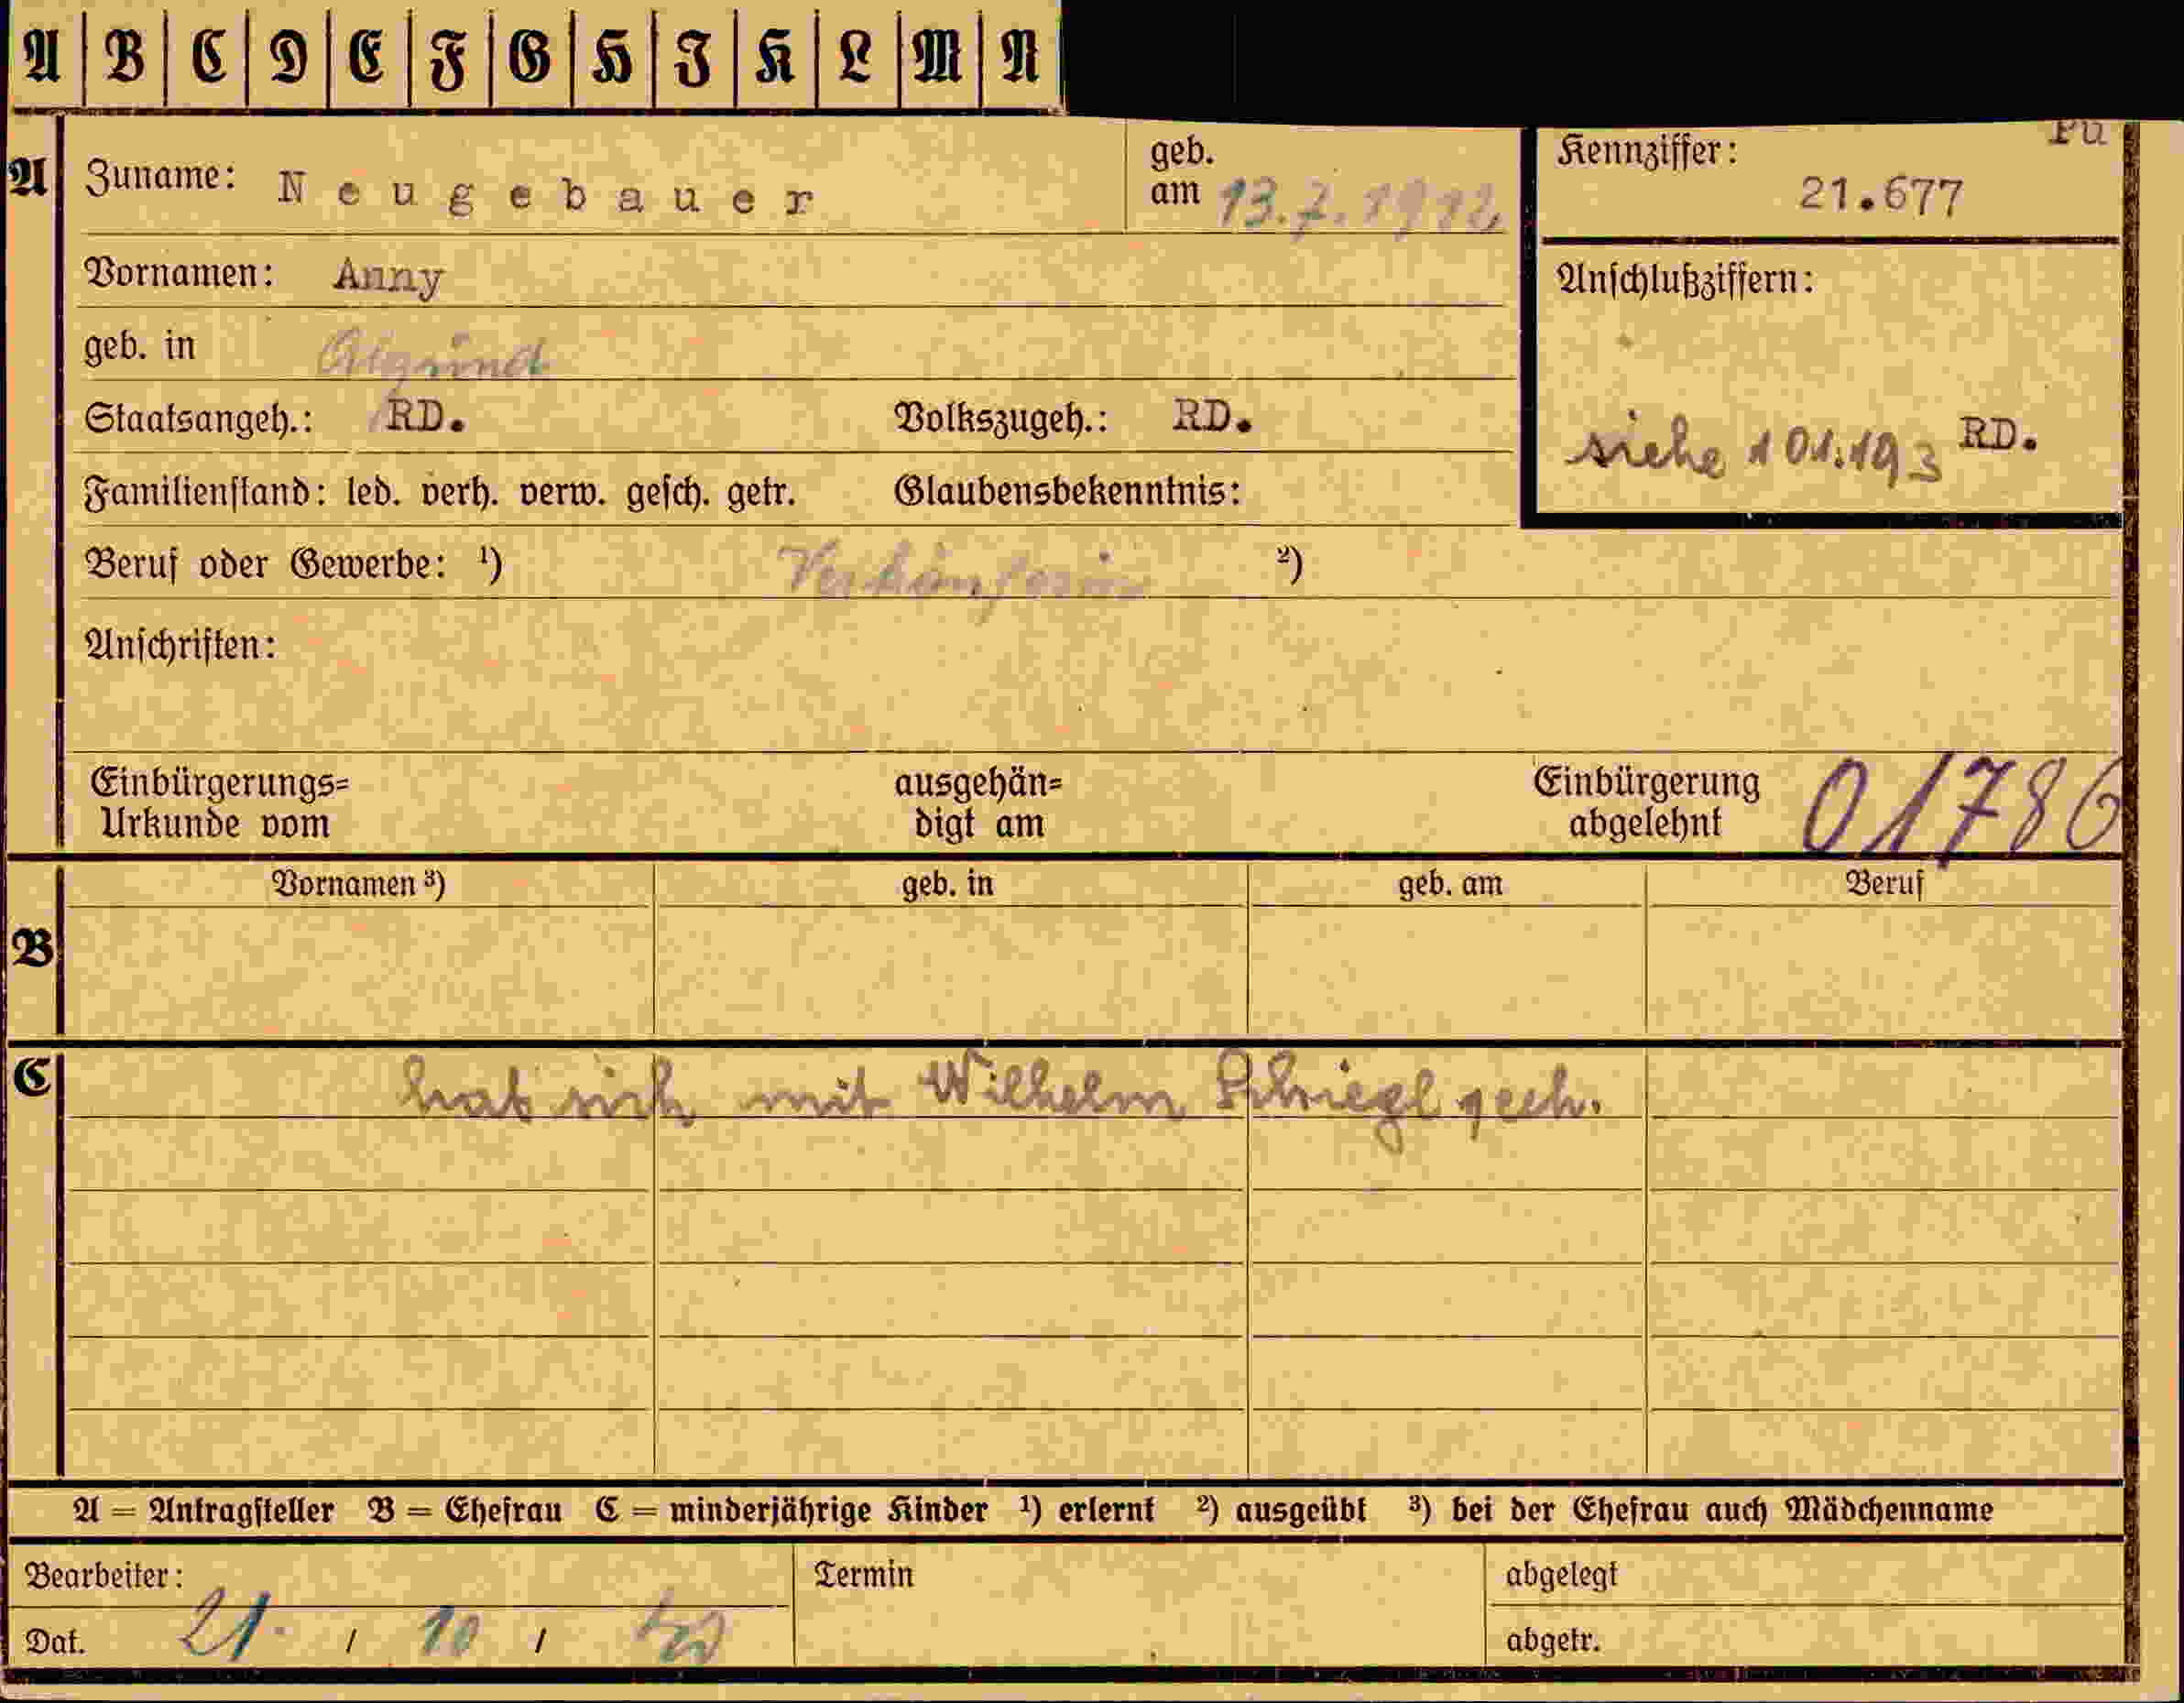 A B C D E F G H I K L M N
A Zuname: Neugebauer geb. am 13.7.1912 Kennziffer: 21.677
Vornamen: Anny
geb. in
Anschlußziffern:
siehe 101.193 RD.
Staatsangeh.: RD. Volkszugeh.: RD.
Familienstand: led. verh. verw. gesch. getr. Glaubensbekenntnis:
Beruf oder Gewerbe: ¹) Verkäuferin ²)
Anschriften:
Einbürgerungs= ausgehän= Einbürgerung 01786
Urkunde vom digt am abgelehnt
Vornamen ³) geb. in geb. am Beruf
B
C hat sich mit Wilhelm gesch.
A = Antragsteller B = Ehefrau C = minderjährige Kinder ¹) erlernt ²) ausgeübt ³) bei der Ehefrau auch Mädchenname
Bearbeiter: Termin abgelegt
Dat. 21. / 10 / abgetr.